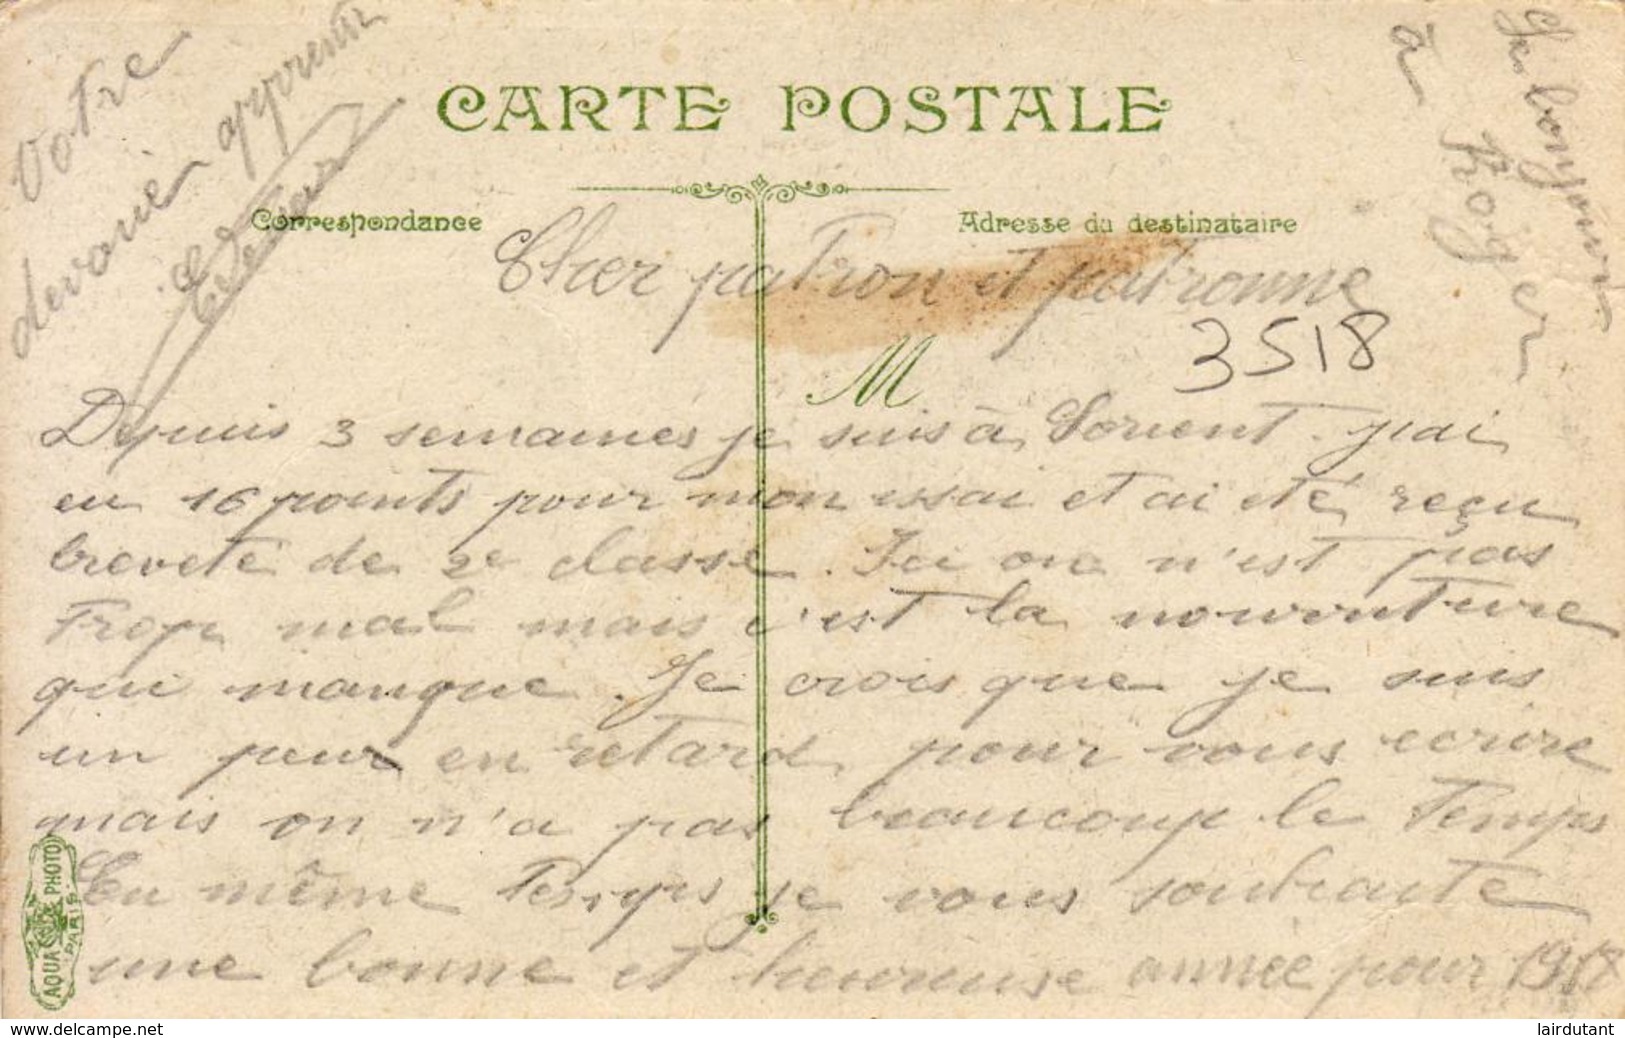 CARTE POSTALE
Correspondance
Adresse du destinataire
M
Cher patron et patronne
3518
Depuis 3 semaines je suis à Lorient. j'ai
eu 16 points pour mon essai et ai été reçu
breveté de 2e classe. Ici on n'est pas
trop mal mais c'est la nourriture
qui manque. Je crois que je suis
un peux en retard pour vous ecrire
mais on n'a pas beaucoup le temps
En même temps je vous souhaite
une bonne et heureuse année pour 1918
Votre
apprenti
bonjours
à
Roger
AQUA PHOTO
PARIS
www.delcampe.net
lairdutant